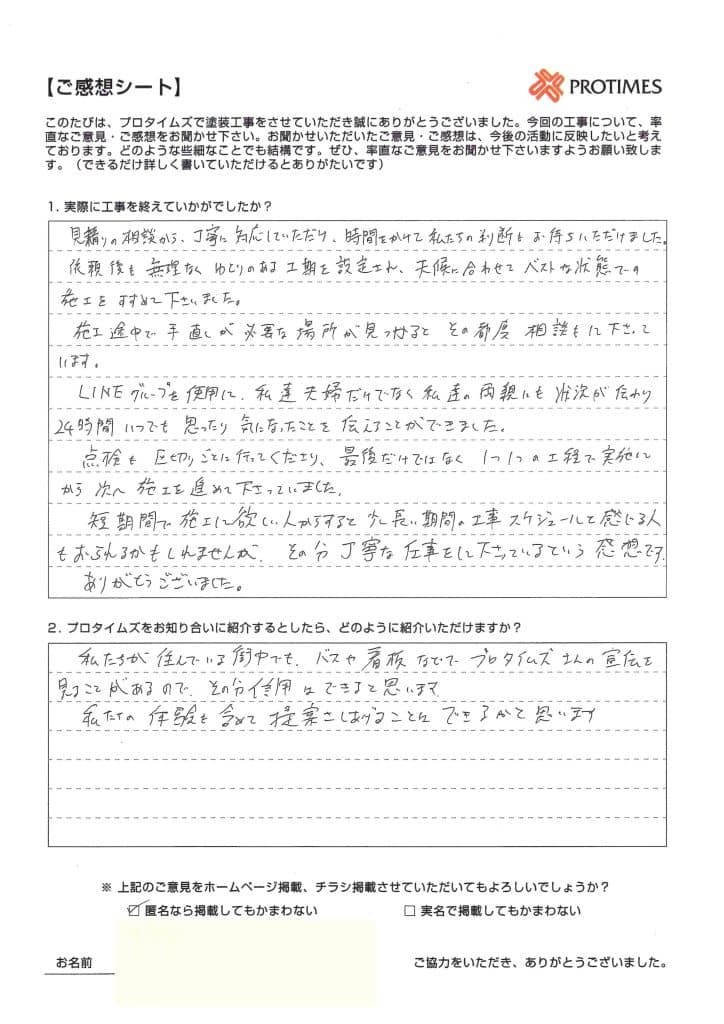 【ご感想シート】
PROTIMES
このたびは、プロタイムズで塗装工事をさせていただき誠にありがとうございました。今回の工事について、率
直なご意見・ご感想をお聞かせ下さい。お聞かせいただいたご意見・ご感想は、今後の活動に反映したいと考え
ております。どのような些細なことでも結構です。ぜひ、率直なご意見をお聞かせ下さいますようお願い致しま
す。（できるだけ詳しく書いていただけるとありがたいです）
１．実際に工事を終えていかがでしたか？
見積りの相談から、丁寧に対応していただけ、時間をかけて私たちの判断もお待ちいただけました。
依頼後も無理なくゆとりのある工期を設定され、天候に合わせてベストな状態での
施工をすすめて下さいました。
施工途中で手直しが必要な場所が見つかるとその都度相談もして下さって
います。
LINEグループを使用して、私達夫婦だけでなく私達の両親にも状況が伝わり
24時間いつでも思ったり気になったことを伝えることができました。
点検も区切りごとに行ってくださり、最後だけではなく1つ1つの工程で実施して
から次へ施工を進めて下さっていました。
短期間で施工して欲しい人からすると少し長い期間の工事スケジュールと感じる人
もおられるかもしれませんが、その分丁寧な仕事をして下さっているという感想です。
ありがとうございました。
２．プロタイムズをお知り合いに紹介するとしたら、どのように紹介いただけますか？
私たちが住んでいる街中でも、バスや看板などでプロタイムズさんの宣伝を
見ることがあるので、その分信用はできると思います。
私たちの体験も含めて提案さしあげることはできるかと思います
※ 上記のご意見をホームページ掲載、チラシ掲載させていただいてもよろしいでしょうか？
☑ 匿名なら掲載してもかまわない　□ 実名で掲載してもかまわない
お名前　ご協力をいただき、ありがとうございました。